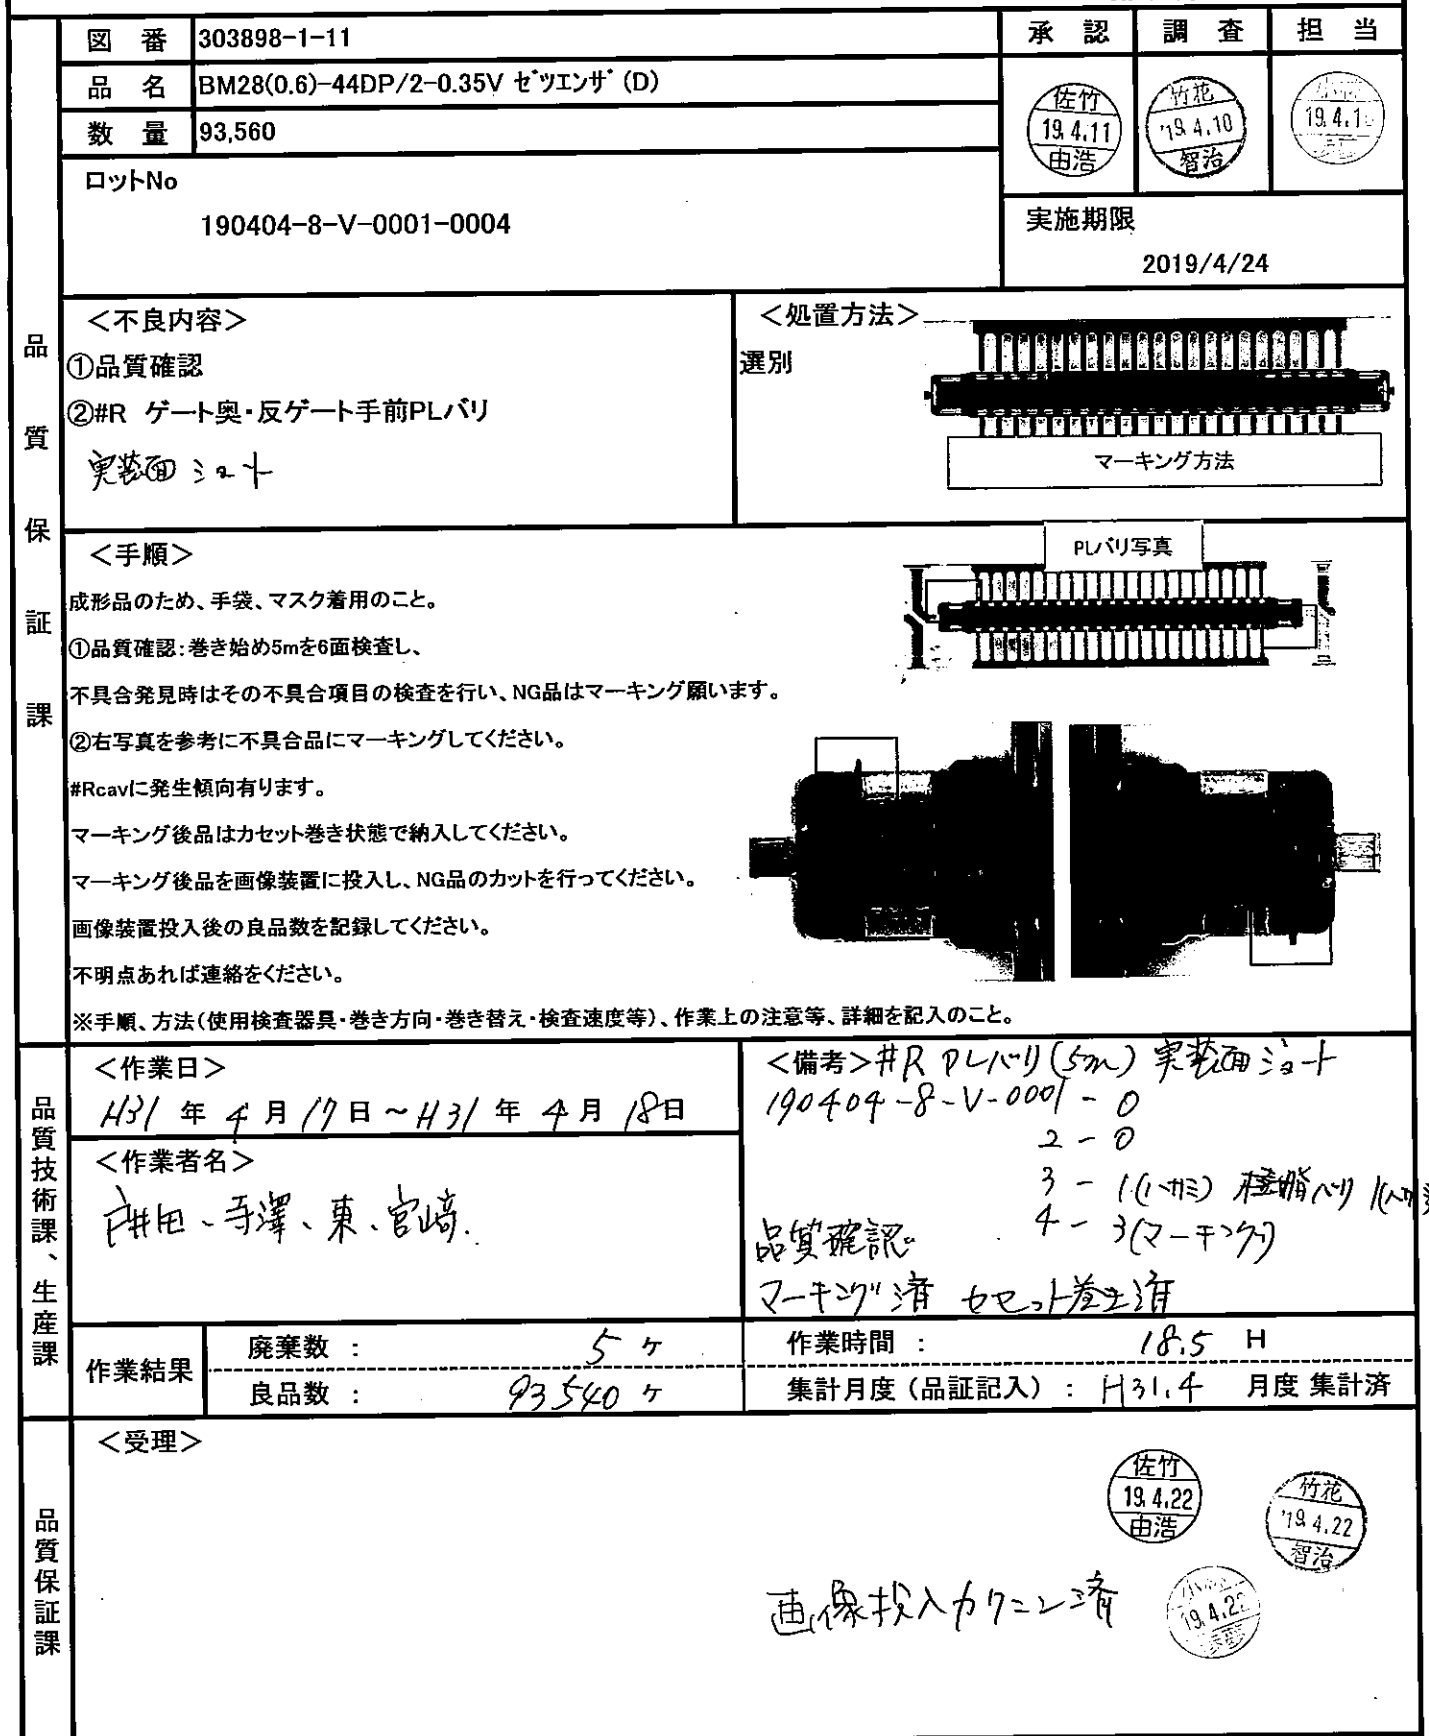 図 番 303898-1-11
品 名 BM28(0.6)-44DP/2-0.35V ゼツエンザ(D)
数 量 93,560
承 認 調 査 担 当
佐竹
19.4.11
由浩
竹花
'19.4.10
智治
19.4.1
ロットNo
190404-8-V-0001-0004
実施期限
2019/4/24
品質保証課
＜不良内容＞
①品質確認
②#R ゲート奥・反ゲート手前PLバリ
実装面ショート
＜処置方法＞
選別
マーキング方法
＜手順＞
PLバリ写真
成形品のため、手袋、マスク着用のこと。
①品質確認:巻き始め5mを6面検査し、
不具合発見時はその不具合項目の検査を行い、NG品はマーキング願います。
②右写真を参考に不具合品にマーキングしてください。
#Rcavに発生傾向有ります。
マーキング後品はカセット巻き状態で納入してください。
マーキング後品を画像装置に投入し、NG品のカットを行ってください。
画像装置投入後の良品数を記録してください。
不明点あれば連絡をください。
※手順、方法(使用検査器具・巻き方向・巻き替え・検査速度等)、作業上の注意等、詳細を記入のこと。
品質技術課、生産課
＜作業日＞
H31 年 4 月 17 日 ～ H31 年 4 月 18 日
＜作業者名＞
戸井田、寺澤、東、宮崎.
＜備考＞ #R PLバリ(5m) 実装面ショート
190404-8-V-0001 - 0
2 - 0
3 - 1(ハガミ) 樹脂バリ
4 - 3(マーキング)
品質確認
マーキング済 カセット巻き済
作業結果
廃棄数 : 5 ヶ
作業時間 : 18.5 H
良品数 : 93540 ヶ
集計月度(品証記入) : H31.4 月度 集計済
品質保証課
＜受理＞
佐竹
19.4.22
由浩
竹花
'19.4.22
智治
19.4.22
画像投入カクニン済